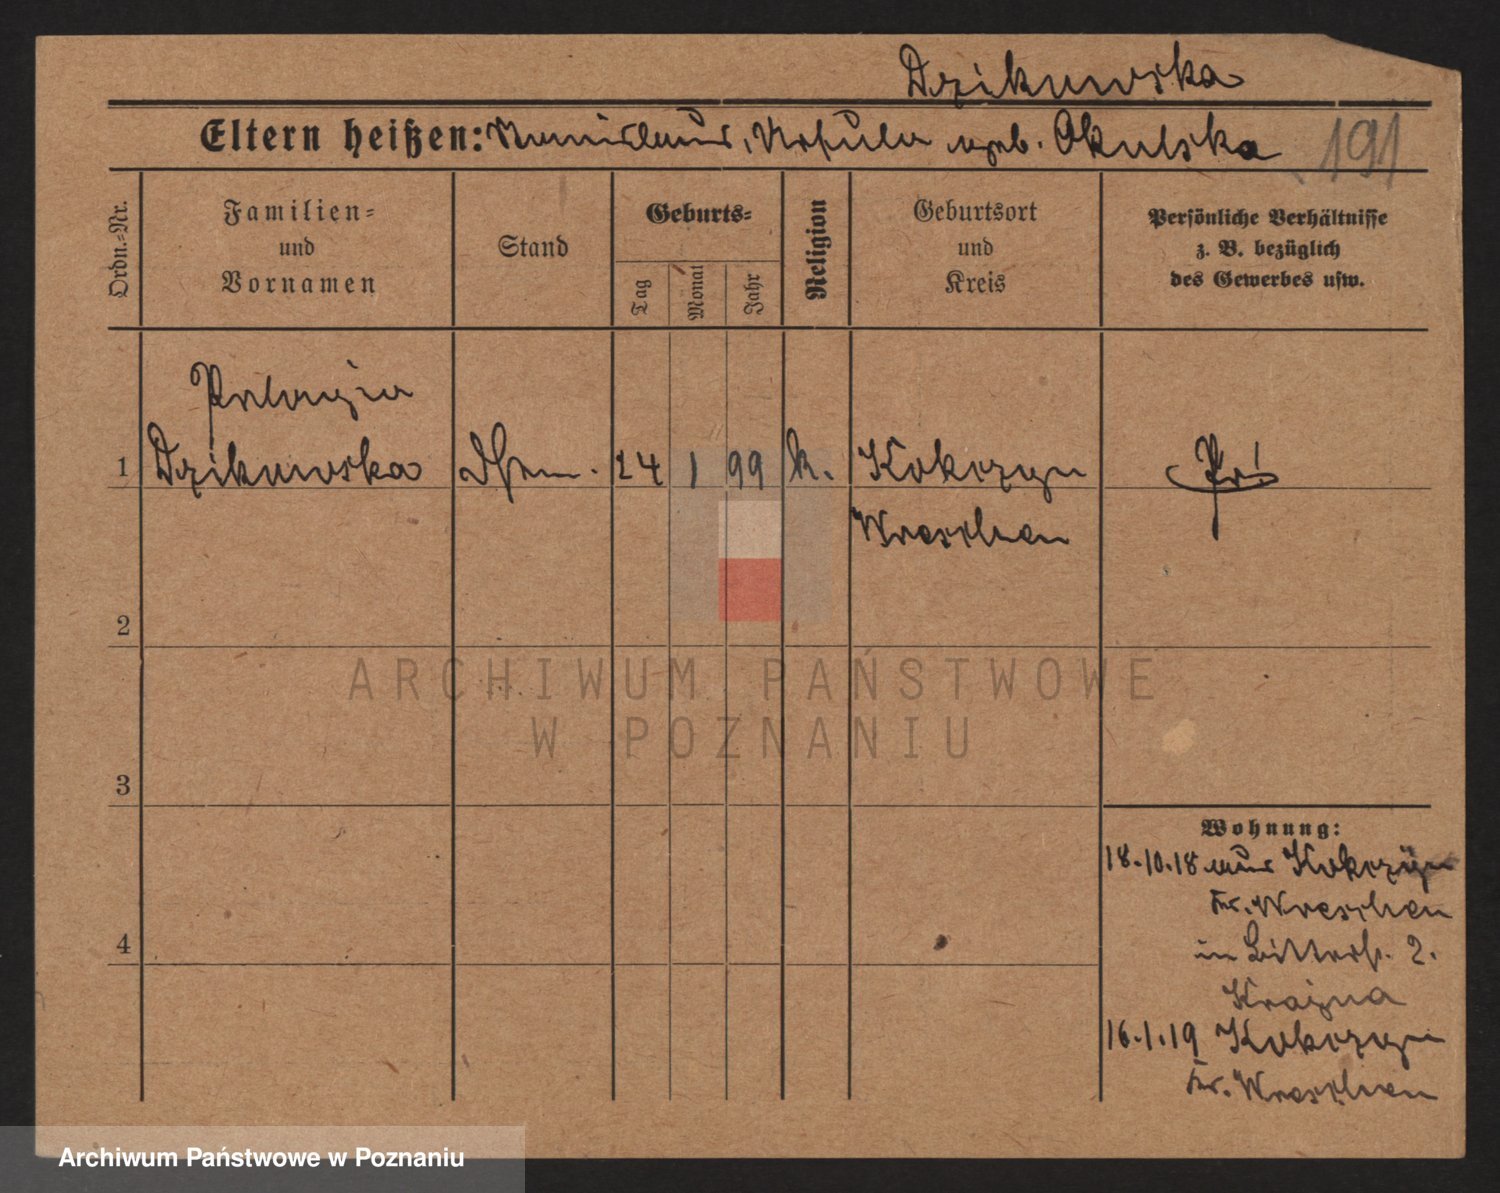 Dzikowska
Eltern heißen: Stanislaus, Ursula geb. Okulska 191
Ordn.-Nr.
Familien-
und
Vornamen
Stand
Geburts-
Tag
Monat
Jahr
Religion
Geburtsort
und
Kreis
Persönliche Verhältnisse
z. B. bezüglich
des Gewerbes usw.
Pelagia
1 Dzikowska 24 1 99 k. Kokczyn
Wreschen
2
3
4
Wohnung:
18.10.18 aus Kokczyn
Kr. Wreschen
in 2.
Krajna
16.1.19 Kokczyn
Kr. Wreschen
ARCHIWUM PAŃSTWOWE
W POZNANIU
Archiwum Państwowe w Poznaniu